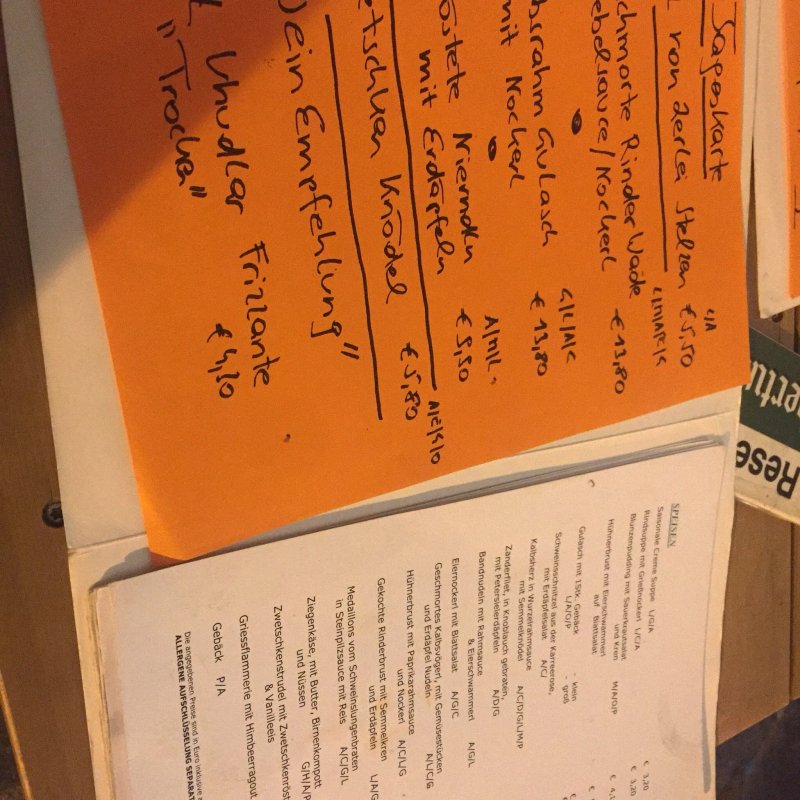 Tageskarte
von 2erlei Stelzen € 5,50
L/A
L/M/A/G/C
chmorte Rinder Wade
ebelsauce/Nockerl € 13,80
bsrahm Gulasch
mit Nockerl € 13,80
G/L/A/C
östete Nierndln
mit Erdäpfeln € 9,50
A/M/L
etschken Knödel € 5,80
A/C/G/O
ein Empfehlung"
Uhudler Frizzante
"Trocken" € 4,20
Rese
SPEISEN
Saisonale Creme Suppe L/G/A
Rindsuppe mit Grießnockerl L/C/A € 3,20
Blunzenpudding mit Sauerkrautsalat
und Kren M/A/G/P € 3,20
Hühnerbrust mit Eierschwammerl
auf Blattsalat
Gulasch mit 1Stk. Gebäck - klein
L/A/O/P - groß
Schweinsschnitzel aus der Karreerose,
mit Erdäpfelsalat A/C/
Kalbsherz in Wurzelrahmsauce
mit Semmelknödel A/C/D/G/L/M/P
Zanderfilet, in Knoblauch gebraten,
mit Petersilerdäpfeln A/D/G
Bandnudeln mit Rahmsauce
& Eierschwammerl A/G/L
Eiernockerl mit Blattsalat A/G/C
Geschmortes Kalbsvögerl, mit Gemüsestücken
und Erdäpfel Nudeln A/L/C/G
Hühnerbrust mit Paprikarahmsauce
und Nockerl A/C/L/G
Gekochte Rinderbrust mit Semmelkren
und Erdäpfeln L/A/G
Medaillons vom Schweinslungenbraten
in Steinpilzsauce mit Reis A/C/G/L
Ziegenkäse, mit Butter, Birnenkompott
und Nüssen G/H/A/P
Zwetschkenstrudel mit Zwetschkenröst
& Vanilleeis
Griessflammerie mit Himbeerragout
Gebäck P/A
Die angegebenen Preise sind in Euro inklusive
ALLERGENE AUFSCHLÜSSELUNG SEPARAT